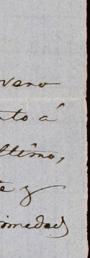 vano
nto á
ltimo,
te y
imedad